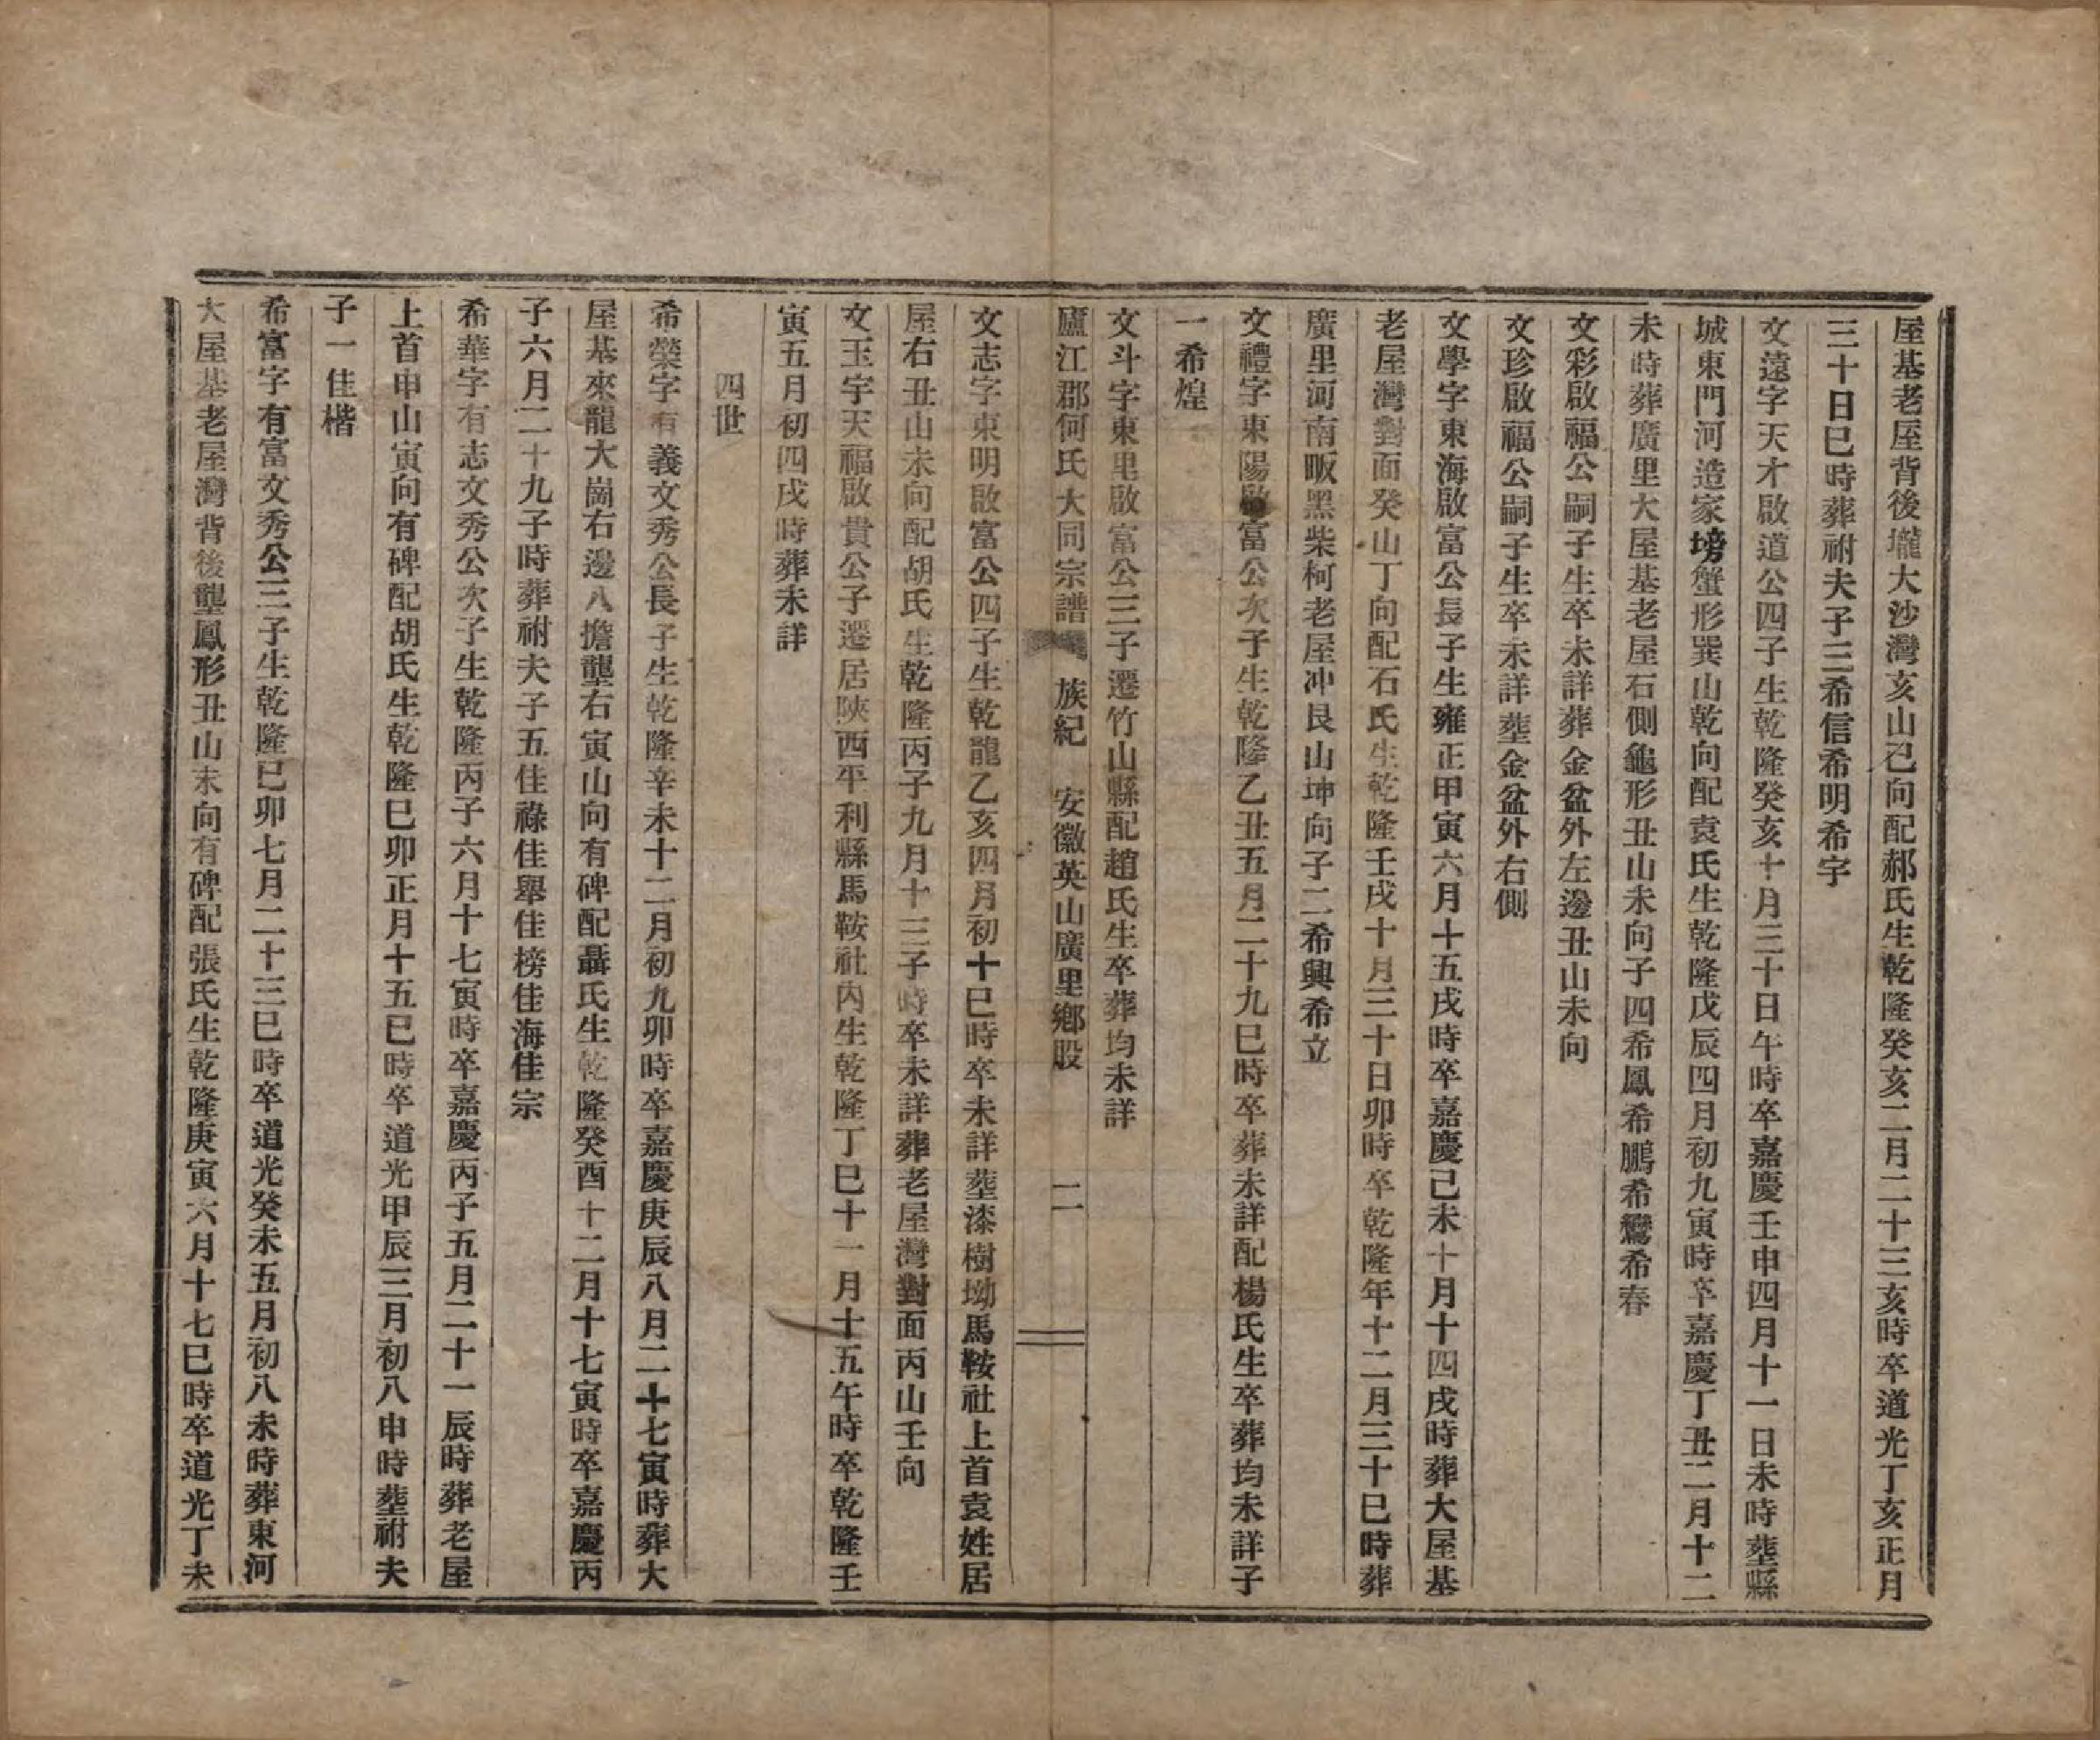 屋基老屋背後壠大沙灣亥山己向配郝氏生乾隆癸亥二月二十三亥時卒道光丁亥正月
三十日巳時葬祔夫子三希信希明希字
文遠字天才啟道公四子生乾隆癸亥十月三十日午時卒嘉慶壬申四月十一日未時塟縣
城東門河造家塝蟹形巽山乾向配袁氏生乾隆戊辰四月初九寅時卒嘉慶丁丑二月十二
未時葬廣里大屋基老屋石側龜形丑山未向子四希鳳希鵬希鸞希春
文彩啟福公嗣子生卒未詳葬金盆外左邊丑山未向
文珍啟福公嗣子生卒未詳塟金盆外右側
文學字東海啟富公長子生雍正甲寅六月十五戌時卒嘉慶己未十月十四戌時葬大屋基
老屋灣對面癸山丁向配石氏生乾隆壬戌十月三十日卯時卒乾隆年十二月三十巳時葬
廣里河南畈黑柴柯老屋冲艮山坤向子二希興希立
文禮字東陽啟富公次子生乾隆乙丑五月二十九巳時卒葬未詳配楊氏生卒葬均未詳子
一希煌
文斗字東里啟富公三子遷竹山縣配趙氏生卒葬均未詳
廬江郡何氏大同宗譜 族紀 安徽英山廣里鄉股 二
文志字東明啟富公四子生乾龍乙亥四月初十巳時卒未詳塟漆樹坳馬鞍社上首袁姓居
屋右丑山未向配胡氏生乾隆丙子九月十三子時卒未詳葬老屋灣對面丙山壬向
文玉字天福啟貴公子遷居陝西平利縣馬鞍社內生乾隆丁巳十一月十五午時卒乾隆壬
寅五月初四戌時葬未詳
四世
希榮字有義文秀公長子生乾隆辛未十二月初九卯時卒嘉慶庚辰八月二十七寅時葬大
屋基來龍大崗右邊八擔壟右寅山向有碑配聶氏生乾隆癸酉十二月十七寅時卒嘉慶丙
子六月二十九子時葬祔夫子五佳祿佳舉佳榜佳海佳宗
希華字有志文秀公次子生乾隆丙子六月十七寅時卒嘉慶丙子五月二十一辰時葬老屋
上首申山寅向有碑配胡氏生乾隆巳卯正月十五巳時卒道光甲辰三月初八申時塟祔夫
子一佳楷
希富字有富文秀公三子生乾隆巳卯七月二十三巳時卒道光癸未五月初八未時葬東河
大屋基老屋灣背後壟鳳形丑山未向有碑配張氏生乾隆庚寅六月十七巳時卒道光丁未